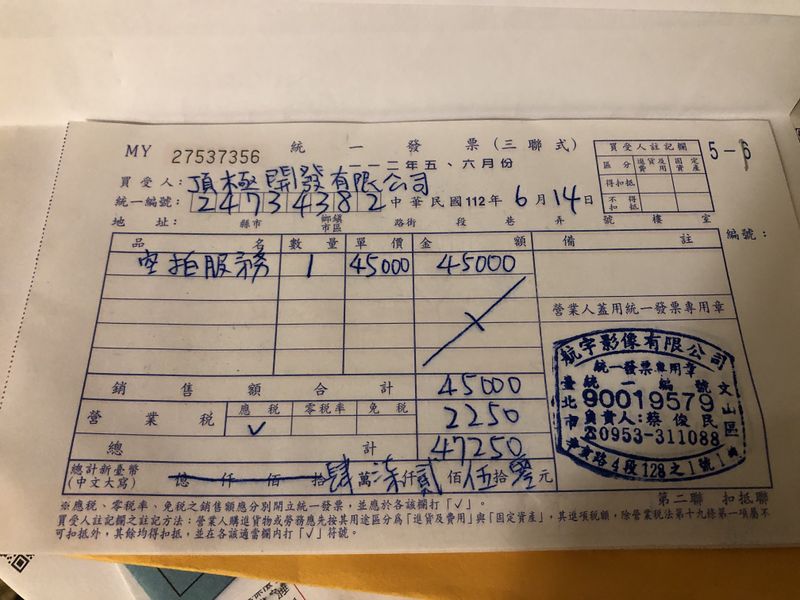 MY 27537356 統一發票(三聯式)
一一二年五、六月份
5-6
買受人註記欄
區分 進貨及費用 固定資產
得扣抵
不得扣抵
買受人: 頂極開發有限公司
統一編號: 24734382 中華民國112年6月14日
地址: 縣市 鄉鎮市區 路街 段 巷 弄 號 樓 室
編號:
品名 數量 單價 金額 備註
空拍服務 1 45000 45000
營業人蓋用統一發票專用章
航宇影像有限公司
統一發票專用章
統一編號
90019579
負責人:蔡俊民
☎0953-311088
臺北市
文山區
路4段128之1號1
銷售額合計 45000
營業稅 應稅 ✓ 零稅率 免稅 2250
總計 47250
總計新臺幣(中文大寫) 億仟佰拾肆萬柒仟貳佰伍拾零元
第二聯 扣抵聯
※應稅、零稅率、免稅之銷售額應分別開立統一發票,並應於各該欄打「✓」。
買受人註記欄之註記方法:營業人購進貨物或勞務應先按其用途區分為「進貨及費用」與「固定資產」,其進項稅額,除營業稅法第十九條第一項屬不
可扣抵外,其餘均得扣抵,並在各該適當欄內打「✓」符號。